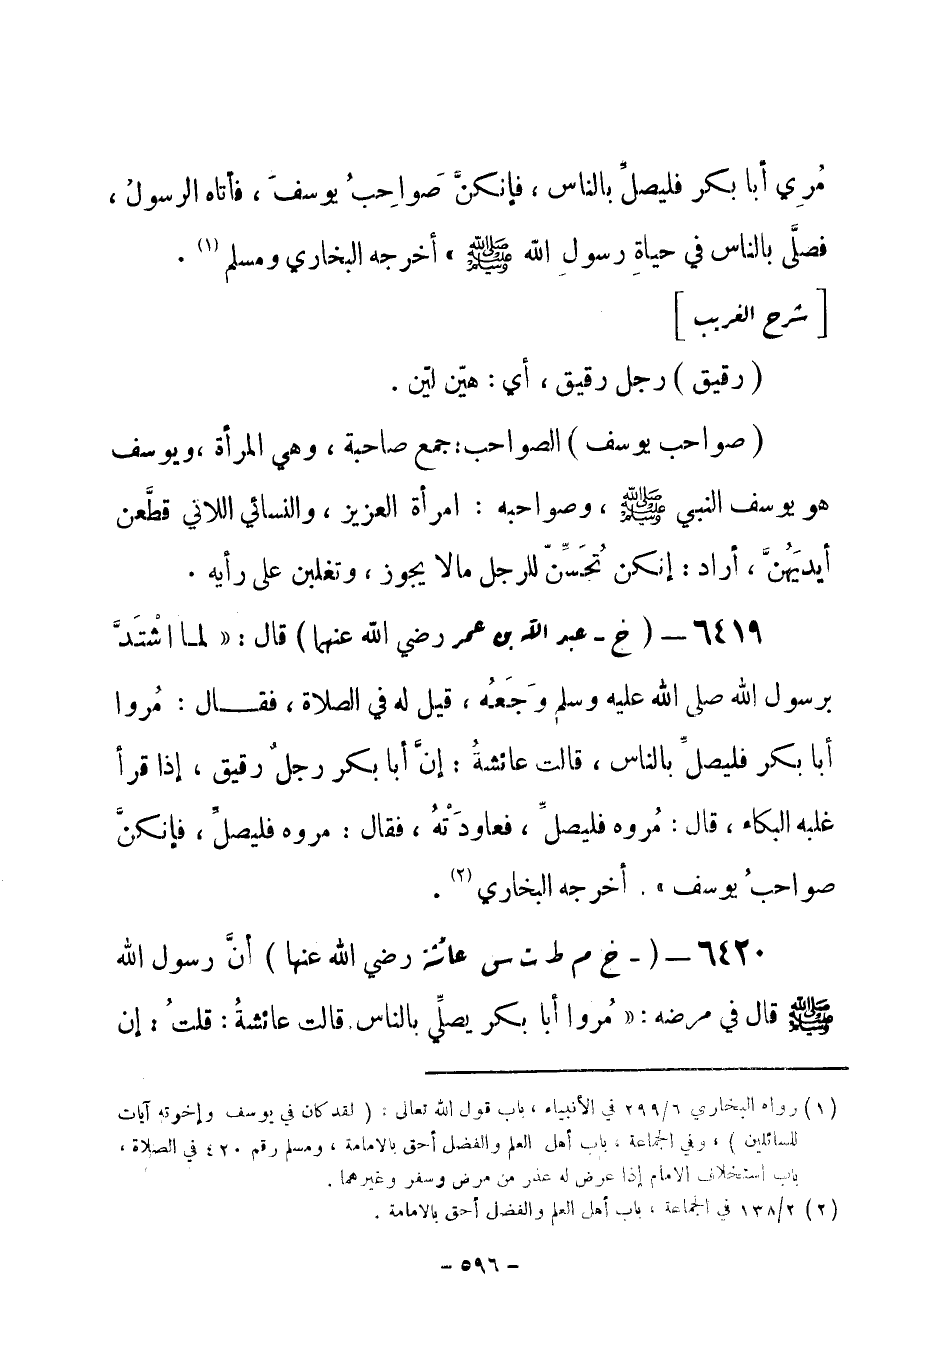 مُرِي أبا بكر فليصلِّ بالناس ، فإنكنَّ صَواحِبُ يوسفَ ، فأتاه الرسولُ ،
فصلَّى بالناس في حياةِ رسولِ الله ﷺ » أخرجه البخاري ومسلم (١) .
[ شرح الغريب ]
( رقيق ) رجل رقيق ، أي : هيّن ليّن .
( صواحب يوسف ) الصواحب : جمع صاحبة ، وهي المرأة ، ويوسف
هو يوسف النبي ﷺ ، وصواحبه : امرأة العزيز ، والنسائي اللاتي قطَّعن
أيديَهُنَّ ، أراد : إنكن تُحَسِّنّ للرجل مالا يجوز ، وتغلبن على رأيه .
٦٤١٩ – ( خ – عبد الله بن عمر رضي الله عنهما ) قال : « لما اشْتَدَّ
برسول الله صلى الله عليه وسلم وَجَعُه ، قيل له في الصلاة ، فقال : مُروا
أبا بكر فليصلِّ بالناس ، قالت عائشةُ : إنَّ أبا بكر رجلٌ رقيق ، إذا قرأ
غلبه البكاء ، قال : مُروه فليصلِّ ، فعاودَتْهُ ، فقال : مروه فليصلِّ ، فإنكنَّ
صواحبُ يوسف » . أخرجه البخاري (٢) .
٦٤٢٠ – ( - خ م ط ت س عائشة رضي الله عنها ) أنَّ رسول الله
ﷺ قال في مرضه : « مُروا أبا بكر يصلِّي بالناس . قالت عائشةُ : قلتُ : إن
(١) رواه البخاري ٢٩٩/٦ في الأنبياء ، باب قول الله تعالى : ( لقد كان في يوسف وإخوته آيات
للسائلين ) ، وفي الجماعة ، باب أهل العلم والفضل أحق بالامامة ، ومسلم رقم ٤٢٠ في الصلاة ،
باب استخلاف الامام إذا عرض له عذر من مرض وسفر وغيرهما .
(٢) ١٣٨/٢ في الجماعة ، باب أهل العلم والفضل أحق بالامامة .
- ٥٩٦ -